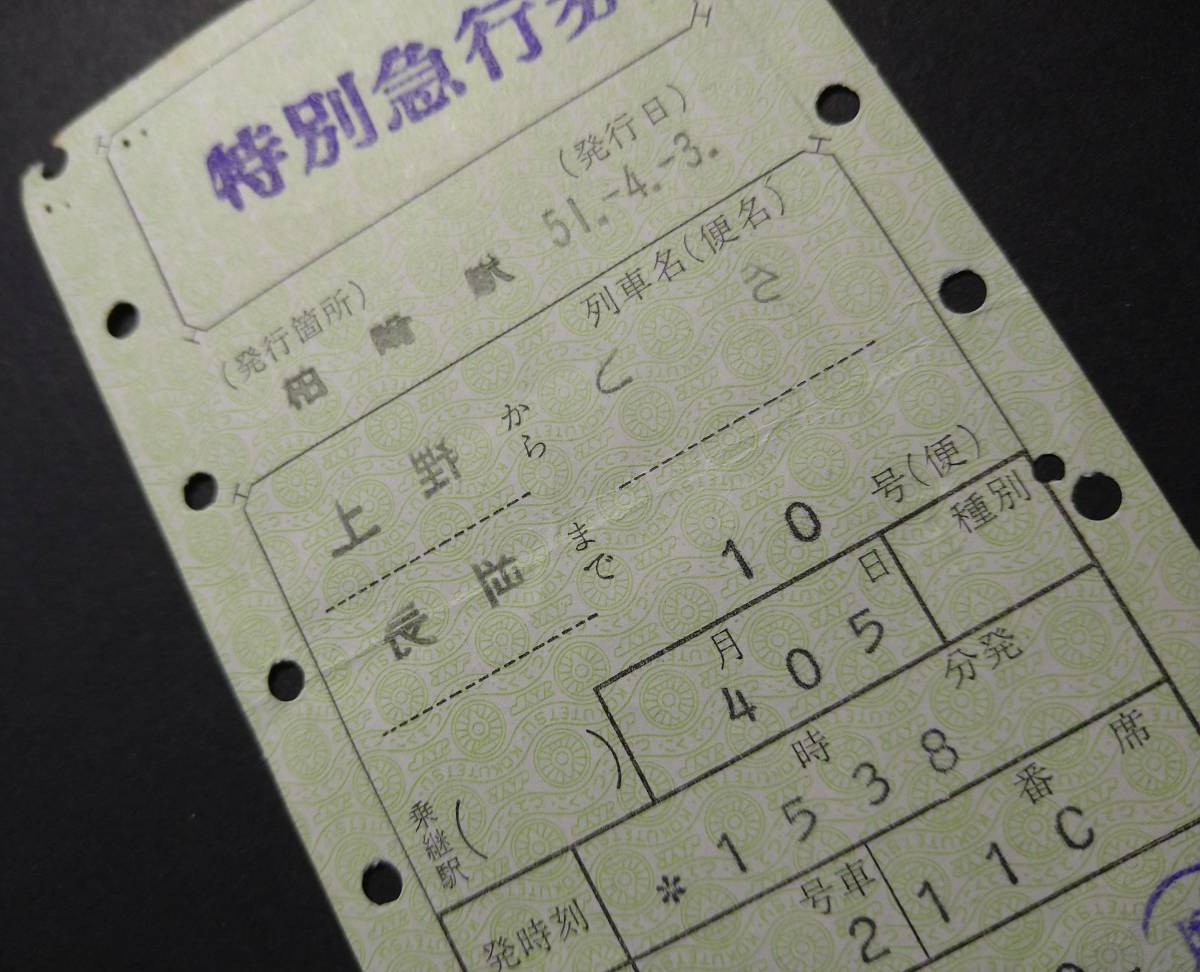 特別急行券
(発行箇所)
(発行日)
51.-4.-3.
駅
列車名(便名)
とき
上野
から
長岡
まで
10
号(便)
月
日
種別
4 05
乗継駅( )
発時刻
時
分発
*1538
号車
2
番
席
11C